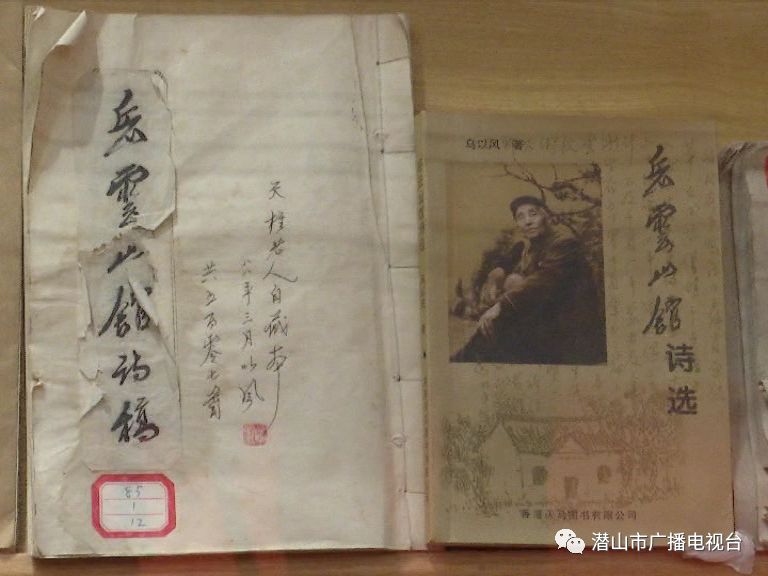 岳雲山館诗稿
天柱老人自藏本
年三月以风
共五百零七首
85
1
12
乌以风 著
岳雲山館诗选
香港天马图书有限公司
潜山市广播电视台